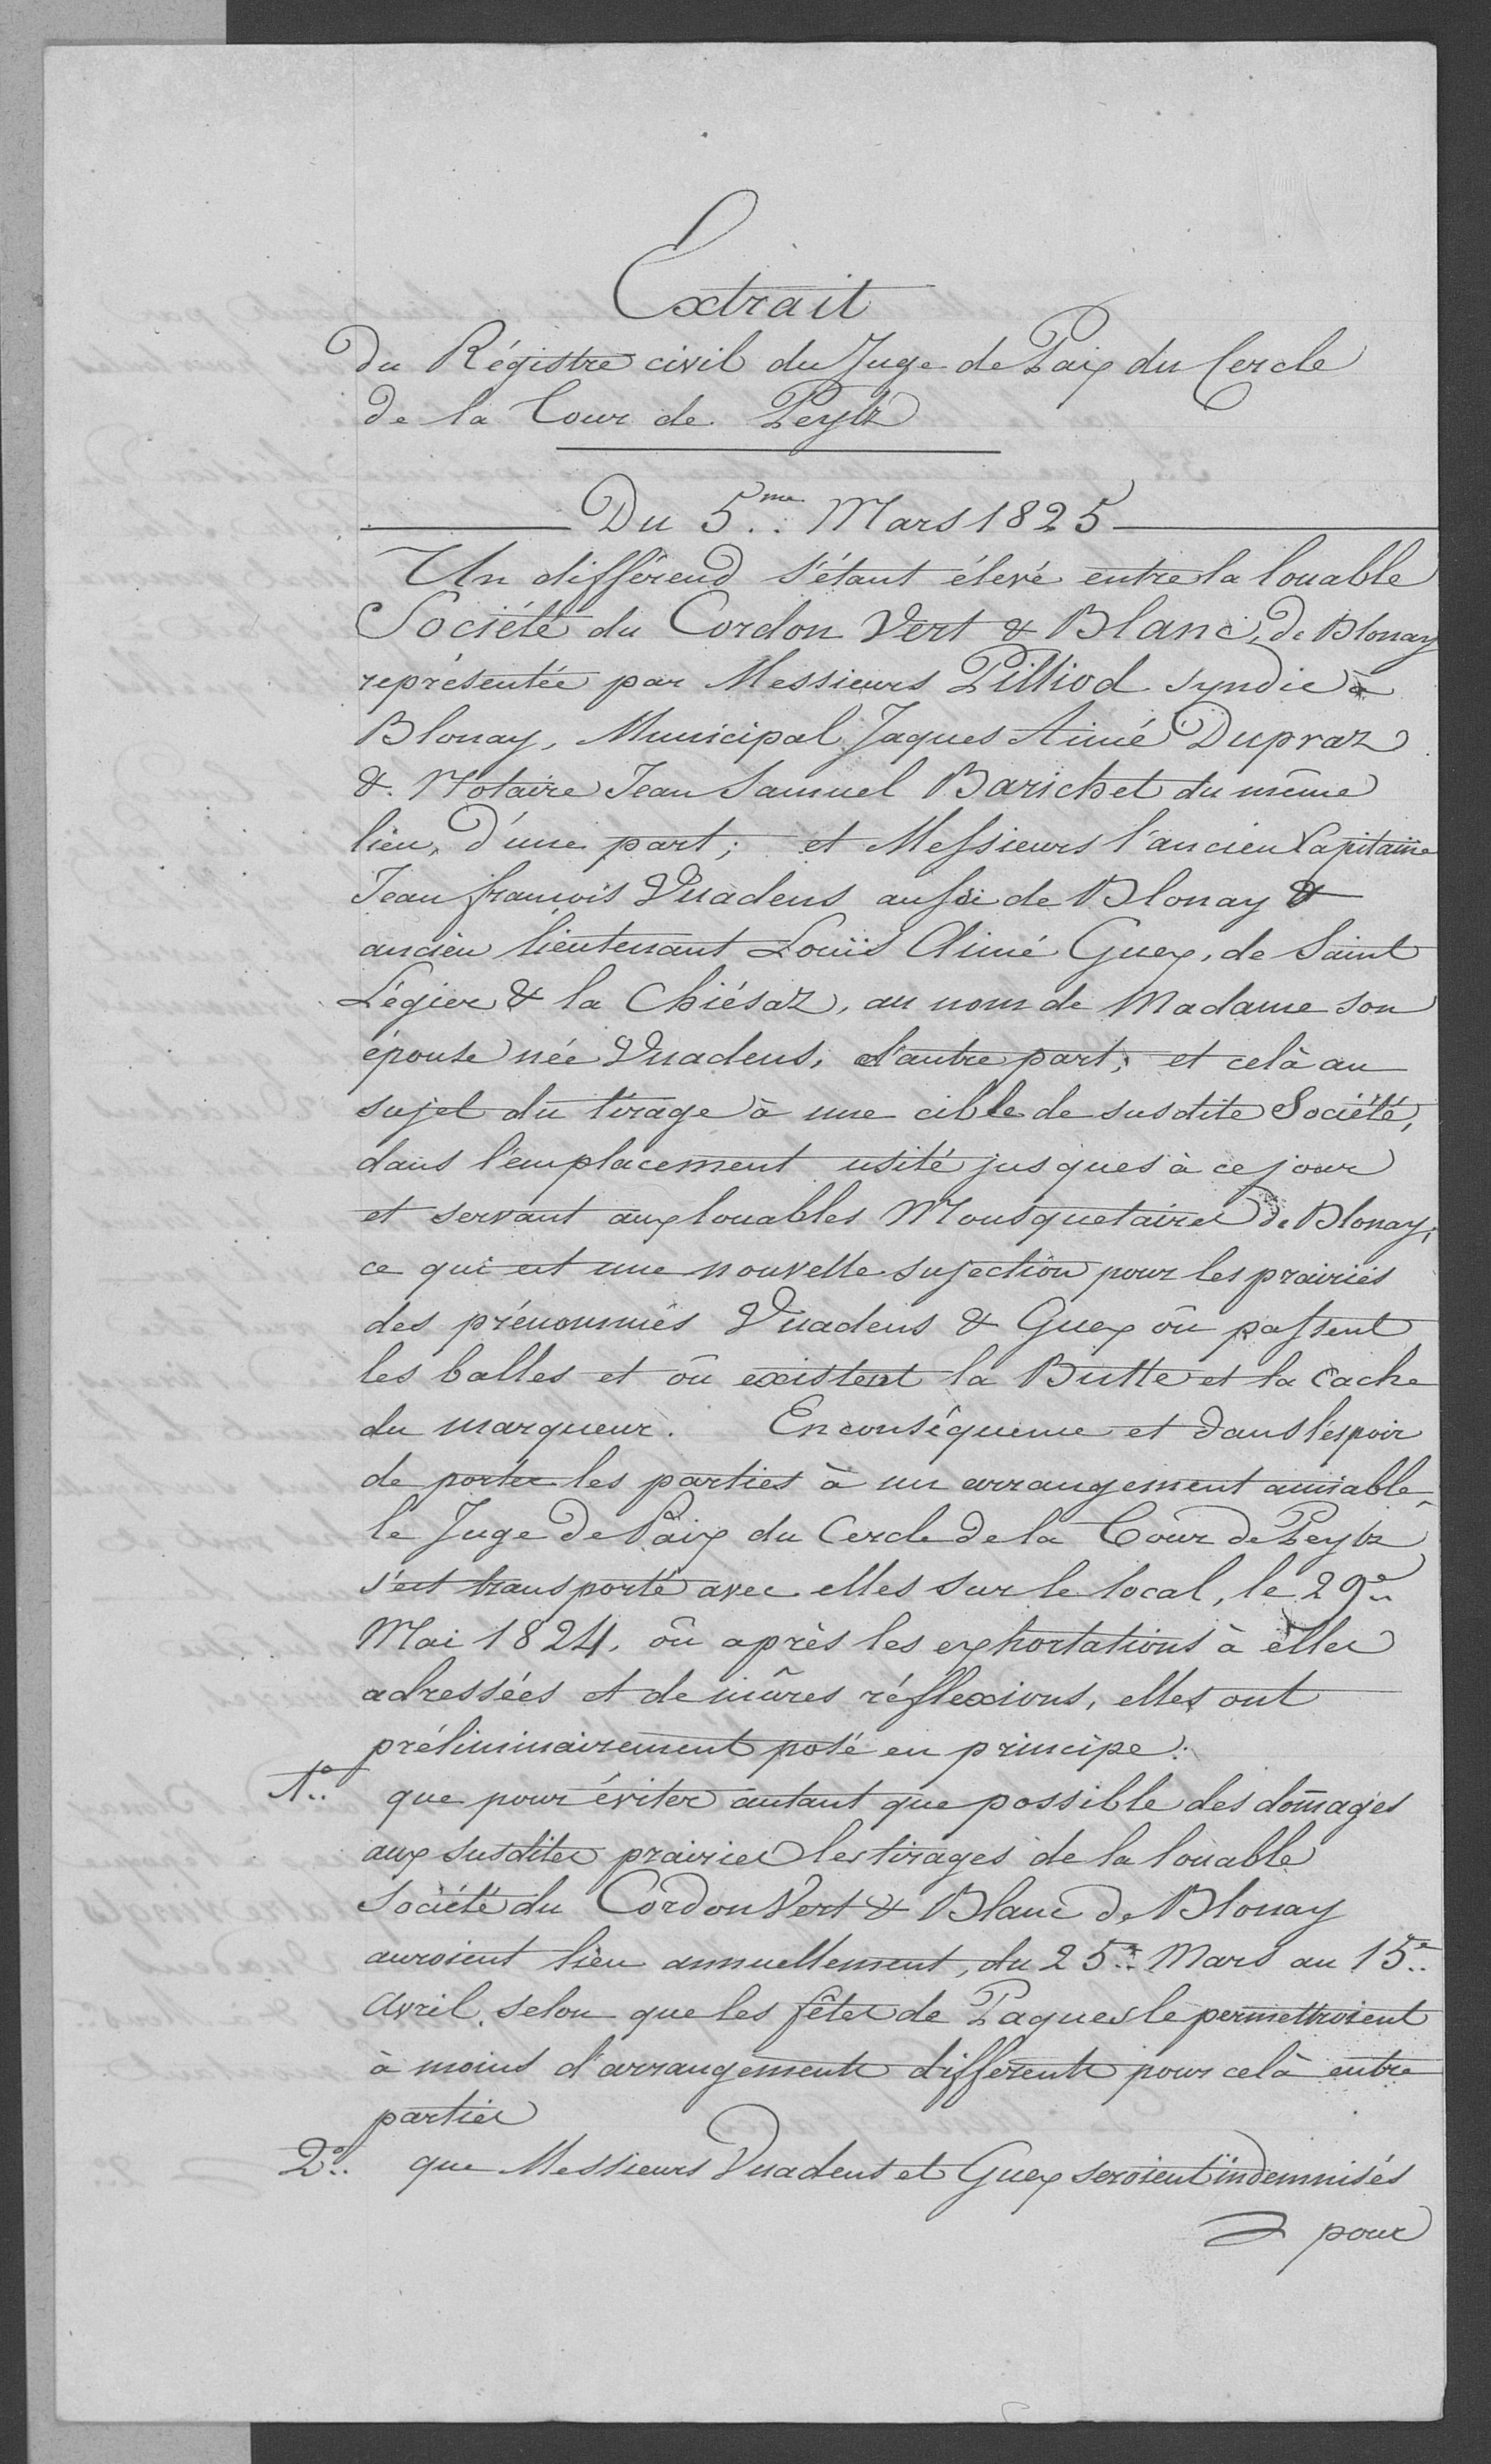 Extrait
du Régistre civil du Juge de Paix du Cercle
de la Tour de Peylz
Du 5.me Mars 1825
Un différend s'étant élevé entre la louable
Société du Cordon Vert & Blanc, de Blonay
représentée par Messieurs Pilliod syndic à
Blonay, Municipal Jaques Aimé Dupraz
&. Notaire Jean Samuel Barichet du même
lieu, d'une part; et Messieurs l'ancien Capitaine
Jean francois Vuadens aussi de Blonay &
ancien lieutenant Louïs Aimé Guex, de Saint
Légier & la Chiésaz, au nom de Madame son
épouse née Vuadens, d'autre part; et celà au
sujet du tirage à une cible de susdite Société,
dans l'emplacement usité jusques à ce jour
et servant aux louables Mousquetaires de Blonay;
ce qui est une nouvelle sujection pour les prairiés
des prénommés Vuadens & Guex où passent
les balles et où existent la Butte et la cache
du marqueur. En conséquence et dans l'espoir
de porter les parties à un arrangement amiable,
le Juge de Paix du Cercle de la Tour de Peylz
s'est transporté avec elles sur le local, le 29e
Mai 1824, où après les exhortations à elles
adressées et de mûres réflexions, elles ont
préliminairement posé en principe:
1.° que pour éviter autant que possible des dom̄ages
aux susdites prairies les tirages de la louable
Société du Cordon Vert & Blanc de Blonay
auroient lieu annuellement, du 25.e Mars au 15.e
Avril, selon que les fêtes de Paques le permettroient
à moins d'arrangements différents pour celà entre
parties
2.° que Messieurs Vuadens et Guex seroient indemnisés
pour